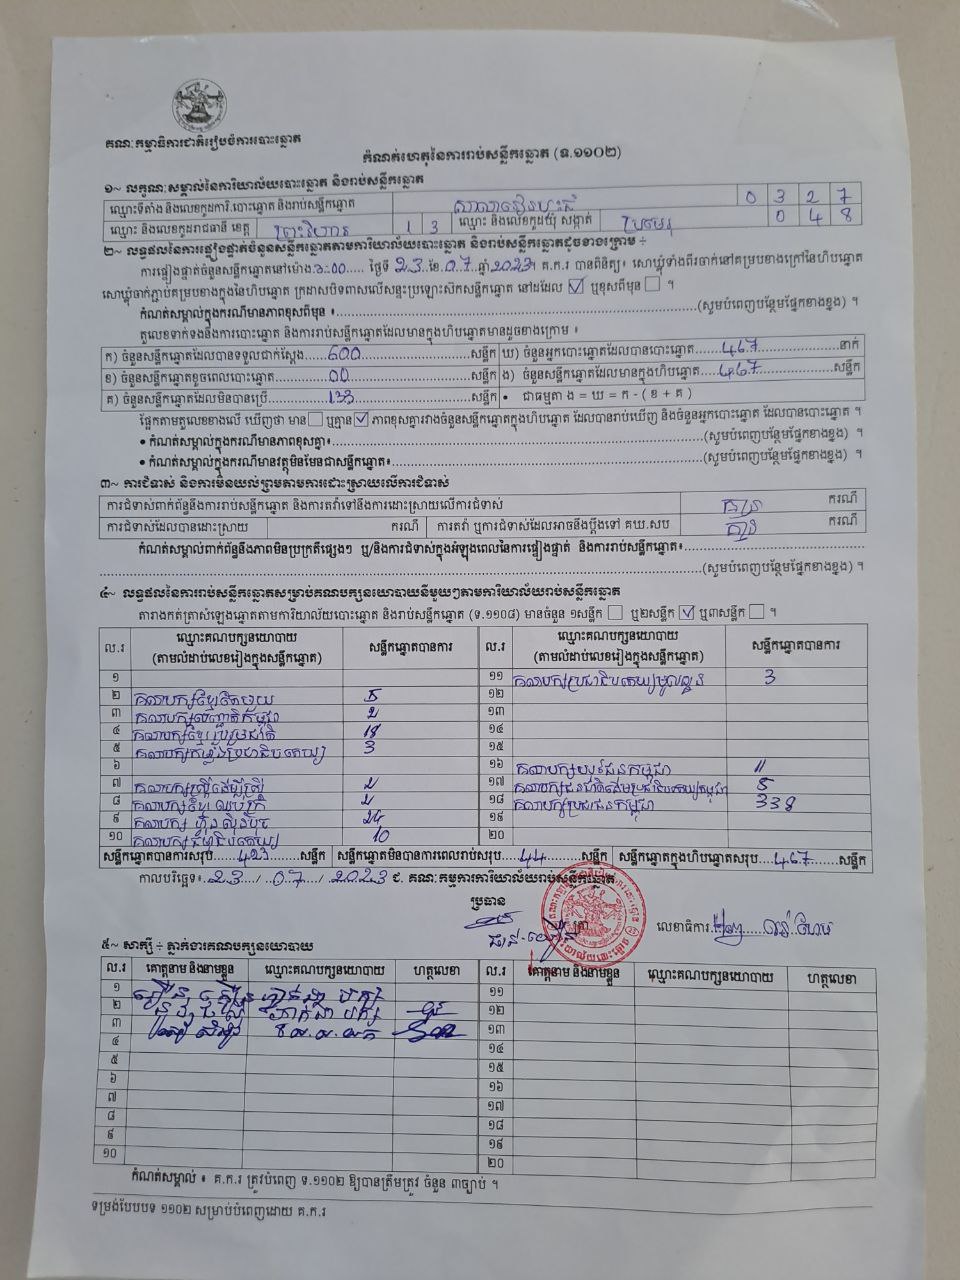 គណៈកម្មាធិការជាតិរៀបចំការបោះឆ្នោត
កំណត់ហេតុនៃការរាប់សន្លឹកឆ្នោត (ទ.១១០២)
១~ លក្ខណៈសម្គាល់នៃការិយាល័យបោះឆ្នោត និងរាប់សន្លឹកឆ្នោត
ឈ្មោះទីតាំង និងលេខកូដការិ.បោះឆ្នោត និងរាប់សន្លឹកឆ្នោត 0 3 2 7
ឈ្មោះ និងលេខកូដរាជធានី ខេត្ត ព្រះវិហារ 1 3 ឈ្មោះ និងលេខកូដឃុំ សង្កាត់ 0 4 8
២~ លទ្ធផលនៃការផ្ទៀងផ្ទាត់ចំនួនសន្លឹកឆ្នោតតាមការិយាល័យបោះឆ្នោត និងរាប់សន្លឹកឆ្នោតដូចខាងក្រោម ÷
ការផ្ទៀងផ្ទាត់ចំនួនសន្លឹកឆ្នោតនៅម៉ោង 3:00 ថ្ងៃទី 23 ខែ 07 ឆ្នាំ 2023 ។ គ.ក.រ បានពិនិត្យ៖ សោឃ្លុំទាំងពីរចាក់នៅគម្របខាងក្រៅនៃហិបឆ្នោត
សោឃ្លុំចាក់ភ្ជាប់គម្របខាងក្នុងនៃហិបឆ្នោត ក្រដាសបិទពាសលើសន្ទះប្រឡោះស៊កសន្លឹកឆ្នោត នៅដដែល ☑ ឬខុសពីមុន ☐ ។
កំណត់សម្គាល់ក្នុងករណីមានភាពខុសពីមុន ៖ (សូមបំពេញបន្ថែមផ្នែកខាងខ្នង) ។
តួលេខទាក់ទងនឹងការបោះឆ្នោត និងការរាប់សន្លឹកឆ្នោតដែលមានក្នុងហិបឆ្នោតមានដូចខាងក្រោម ៖
ក) ចំនួនសន្លឹកឆ្នោតដែលបានទទួលជាក់ស្តែង 600 សន្លឹក ឃ) ចំនួនអ្នកបោះឆ្នោតដែលបានបោះឆ្នោត 467 នាក់
ខ) ចំនួនសន្លឹកឆ្នោតខូចពេលបោះឆ្នោត 00 សន្លឹក ង) ចំនួនសន្លឹកឆ្នោតដែលមានក្នុងហិបឆ្នោត 467 សន្លឹក
គ) ចំនួនសន្លឹកឆ្នោតដែលមិនបានប្រើ 133 សន្លឹក • ជាធម្មតា ង = ឃ = ក - ( ខ + គ )
ផ្អែកតាមតួលេខខាងលើ ឃើញថា មាន ☐ ឬគ្មាន ☑ ភាពខុសគ្នារវាងចំនួនសន្លឹកឆ្នោតក្នុងហិបឆ្នោត ដែលបានរាប់ឃើញ និងចំនួនអ្នកបោះឆ្នោត ដែលបានបោះឆ្នោត ។
• កំណត់សម្គាល់ក្នុងករណីមានភាពខុសគ្នា៖ (សូមបំពេញបន្ថែមផ្នែកខាងខ្នង) ។
• កំណត់សម្គាល់ក្នុងករណីមានវត្ថុមិនមែនជាសន្លឹកឆ្នោត៖ (សូមបំពេញបន្ថែមផ្នែកខាងខ្នង) ។
៣~ ការជំទាស់ និងការមិនយល់ព្រមតាមការដោះស្រាយលើការជំទាស់
ការជំទាស់ពាក់ព័ន្ធនឹងការរាប់សន្លឹកឆ្នោត និងការតវ៉ាទៅនឹងការដោះស្រាយលើការជំទាស់ គ្មាន ករណី
ការជំទាស់ដែលបានដោះស្រាយ ករណី ការតវ៉ា ឬការជំទាស់ដែលអាចនឹងប្តឹងទៅ គឃ.សប គ្មាន ករណី
កំណត់សម្គាល់ពាក់ព័ន្ធនឹងភាពមិនប្រក្រតីផ្សេងៗ ឬ/និងការជំទាស់ក្នុងអំឡុងពេលនៃការផ្ទៀងផ្ទាត់ និងការរាប់សន្លឹកឆ្នោត៖
(សូមបំពេញបន្ថែមផ្នែកខាងខ្នង) ។
៤~ លទ្ធផលនៃការរាប់សន្លឹកឆ្នោតសម្រាប់គណបក្សនយោបាយនីមួយៗតាមការិយាល័យរាប់សន្លឹកឆ្នោត
តារាងកត់ត្រាសំឡេងឆ្នោតតាមការិយាល័យបោះឆ្នោត និងរាប់សន្លឹកឆ្នោត (ទ.១១០៨) មានចំនួន ១សន្លឹក ☐ ឬ២សន្លឹក ☑ ឬ៣សន្លឹក ☐ ។
ល.រ ឈ្មោះគណបក្សនយោបាយ (តាមលំដាប់លេខរៀងក្នុងសន្លឹកឆ្នោត) សន្លឹកឆ្នោតបានការ ល.រ ឈ្មោះគណបក្សនយោបាយ (តាមលំដាប់លេខរៀងក្នុងសន្លឹកឆ្នោត) សន្លឹកឆ្នោតបានការ
១ ១១ គណបក្សប្រជាធិបតេយ្យមូលដ្ឋាន 3
២ គណបក្សខ្មែរតែមួយ 5 ១២
៣ គណបក្សបញ្ញាជាតិកម្ពុជា 2 ១៣
៤ គណបក្សខ្មែររួបរួមជាតិ 18 ១៤
៥ គណបក្សកម្លាំងប្រជាធិបតេយ្យ 3 ១៥
៦ ១៦ គណបក្សយុវជនកម្ពុជា 11
៧ គណបក្សស្ត្រីដើម្បីស្ត្រី 2 ១៧ គណបក្សជនជាតិដើមប្រជាធិបតេយ្យកម្ពុជា 5
៨ គណបក្សខ្មែរឈប់ក្រ 2 ១៨ គណបក្សប្រជាជនកម្ពុជា 338
៩ គណបក្ស ហ្វ៊ុនស៊ិនប៉ិច 24 ១៩
១០ គណបក្សធម្មាធិបតេយ្យ 10 ២០
សន្លឹកឆ្នោតបានការសរុប 423 សន្លឹក សន្លឹកឆ្នោតមិនបានការពេលរាប់សរុប 44 សន្លឹក សន្លឹកឆ្នោតក្នុងហិបឆ្នោតសរុប 467 សន្លឹក
កាលបរិច្ឆេទ៖ 23 / 07 / 2023 ជ. គណៈកម្មការការិយាល័យរាប់សន្លឹកឆ្នោត
ប្រធាន
លេខាធិការ
៥~ សាក្សី ÷ ភ្នាក់ងារគណបក្សនយោបាយ
ល.រ គោត្តនាម និងនាមខ្លួន ឈ្មោះគណបក្សនយោបាយ ហត្ថលេខា ល.រ គោត្តនាម និងនាមខ្លួន ឈ្មោះគណបក្សនយោបាយ ហត្ថលេខា
១ ១១
២ ១២
៣ ១៣
៤ ១៤
៥ ១៥
៦ ១៦
៧ ១៧
៨ ១៨
៩ ១៩
១០ ២០
កំណត់សម្គាល់ ៖ គ.ក.រ ត្រូវបំពេញ ទ.១១០២ ឱ្យបានត្រឹមត្រូវ ចំនួន ៣ច្បាប់ ។
ទម្រង់បែបបទ ១១០២ សម្រាប់បំពេញដោយ គ.ក.រ